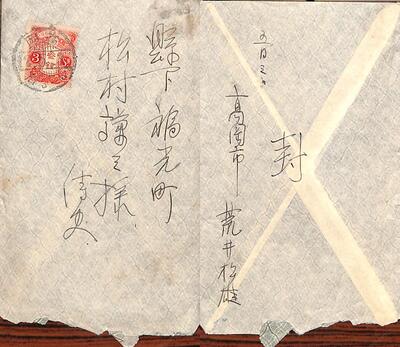 縣下福光町
松村謙三様
侍史
3
五月三日
封
高岡市
荒井松雄